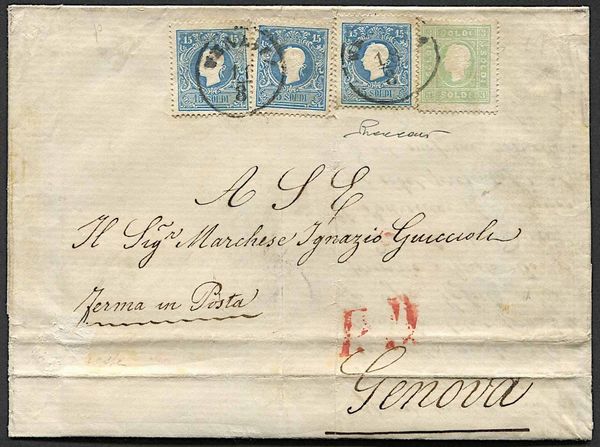 15 15 15 SOLDI
SOLDI SOLDI SOLDI SOLDI
A S E
Il Sigr Marchese Ignazio Guiccioli
Ferma in Posta
P.D
Genova